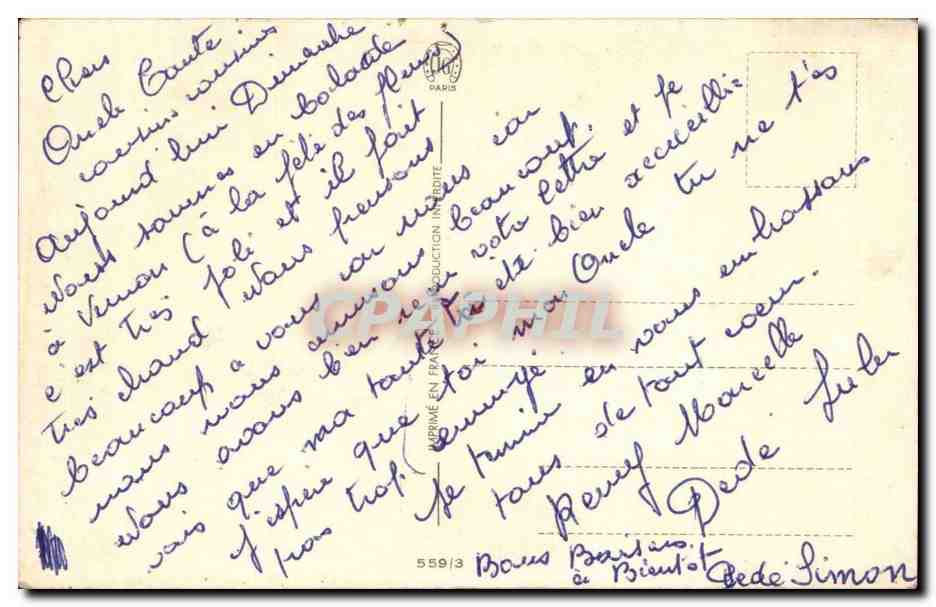 Chers
Oncle Tante
cousins cousines
Aujourd'hui Dimanche
Nous sommes en balade
à Vernon (à la fête des fleurs)
c'est très joli et il fait
très chaud Nous pensons
beaucoup a vous car nous
nous nous amusons beaucoup.
Nous avons bien reçu votre lettre et je
vois que ma tante t'as été bien
J'espère que toi mon Oncle tu ne t'es
pas trop ennuyé
Je termine en vous embrassant
tous de tout coeur.
Remy Marcelle
Dédé
Bons Baisers
à Bientot
Dédé Simon
PARIS
IMPRIMÉ EN FRANCE
REPRODUCTION INTERDITE
559/3
CPAPHIL